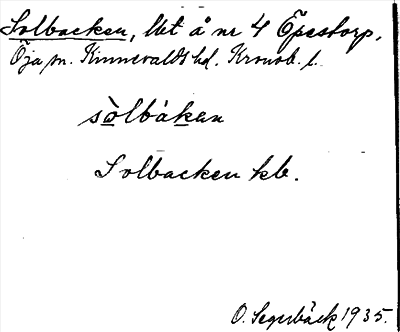 Solbacken, lht å nr 4 Öpestorp,
Öja sn. Kinnevalds hd. Kronob. l.
sòlbákan
Solbacken kb.
O. Segerbäck 1935.